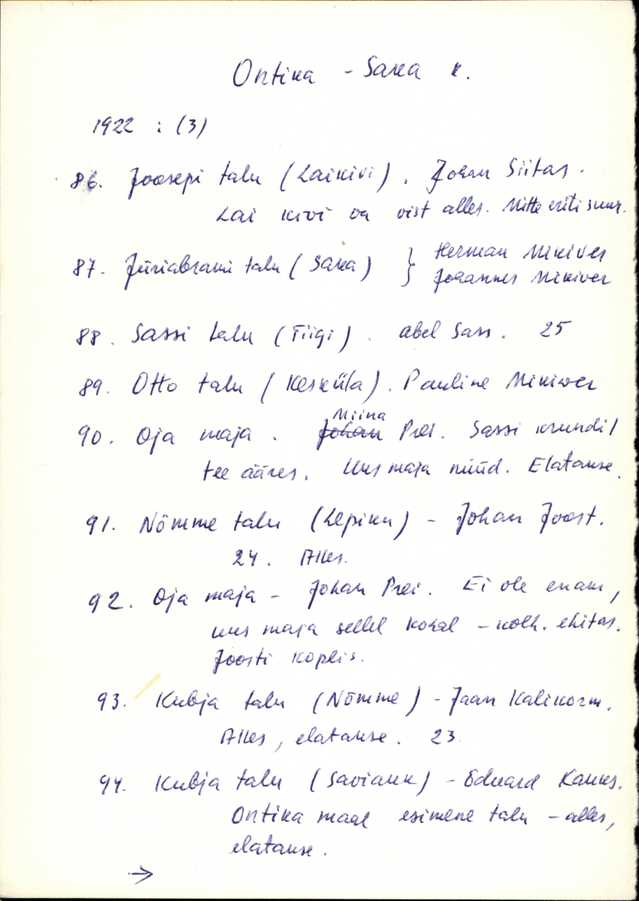 Ontika - Saka k.
1922 : (3)
86. Joosepi talu (Laikivi). Johan Siitas.
Lai kivi on vist alles. Mitte eriti suur.
87. Jüriabrami talu (Saka) } Herman Mikiver
Johannes Mikiver
88. Sassi talu (Tiigi). Abel Sass. 25
89. Otto talu (Kesküla). Pauline Mikiver
90. Oja maja. Johan Miina Prei. Sassi krundil
tee ääres. Uus maja nüüd. Elatakse.
91. Nõmme talu (Lepiku) - Johan Joost.
24. Alles.
92. Oja maja - Johan Prei. Ei ole enam,
uus maja sellel kohal - kolh. ehitas.
Joosti koplis.
93. Kubja talu (Nõmme) - Jaan Kalikorm.
Alles, elatakse. 23
94. Kubja talu (Saviauk) - Eduard Kaukes.
Ontika maal esimene talu - alles,
elatakse.
→